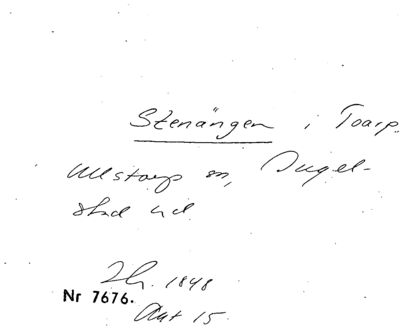 Stenängen i Toarp.
Ullstorp sn, Ingel-
stad hd
Lh. 1848
Nr 7676.
Akt 15.